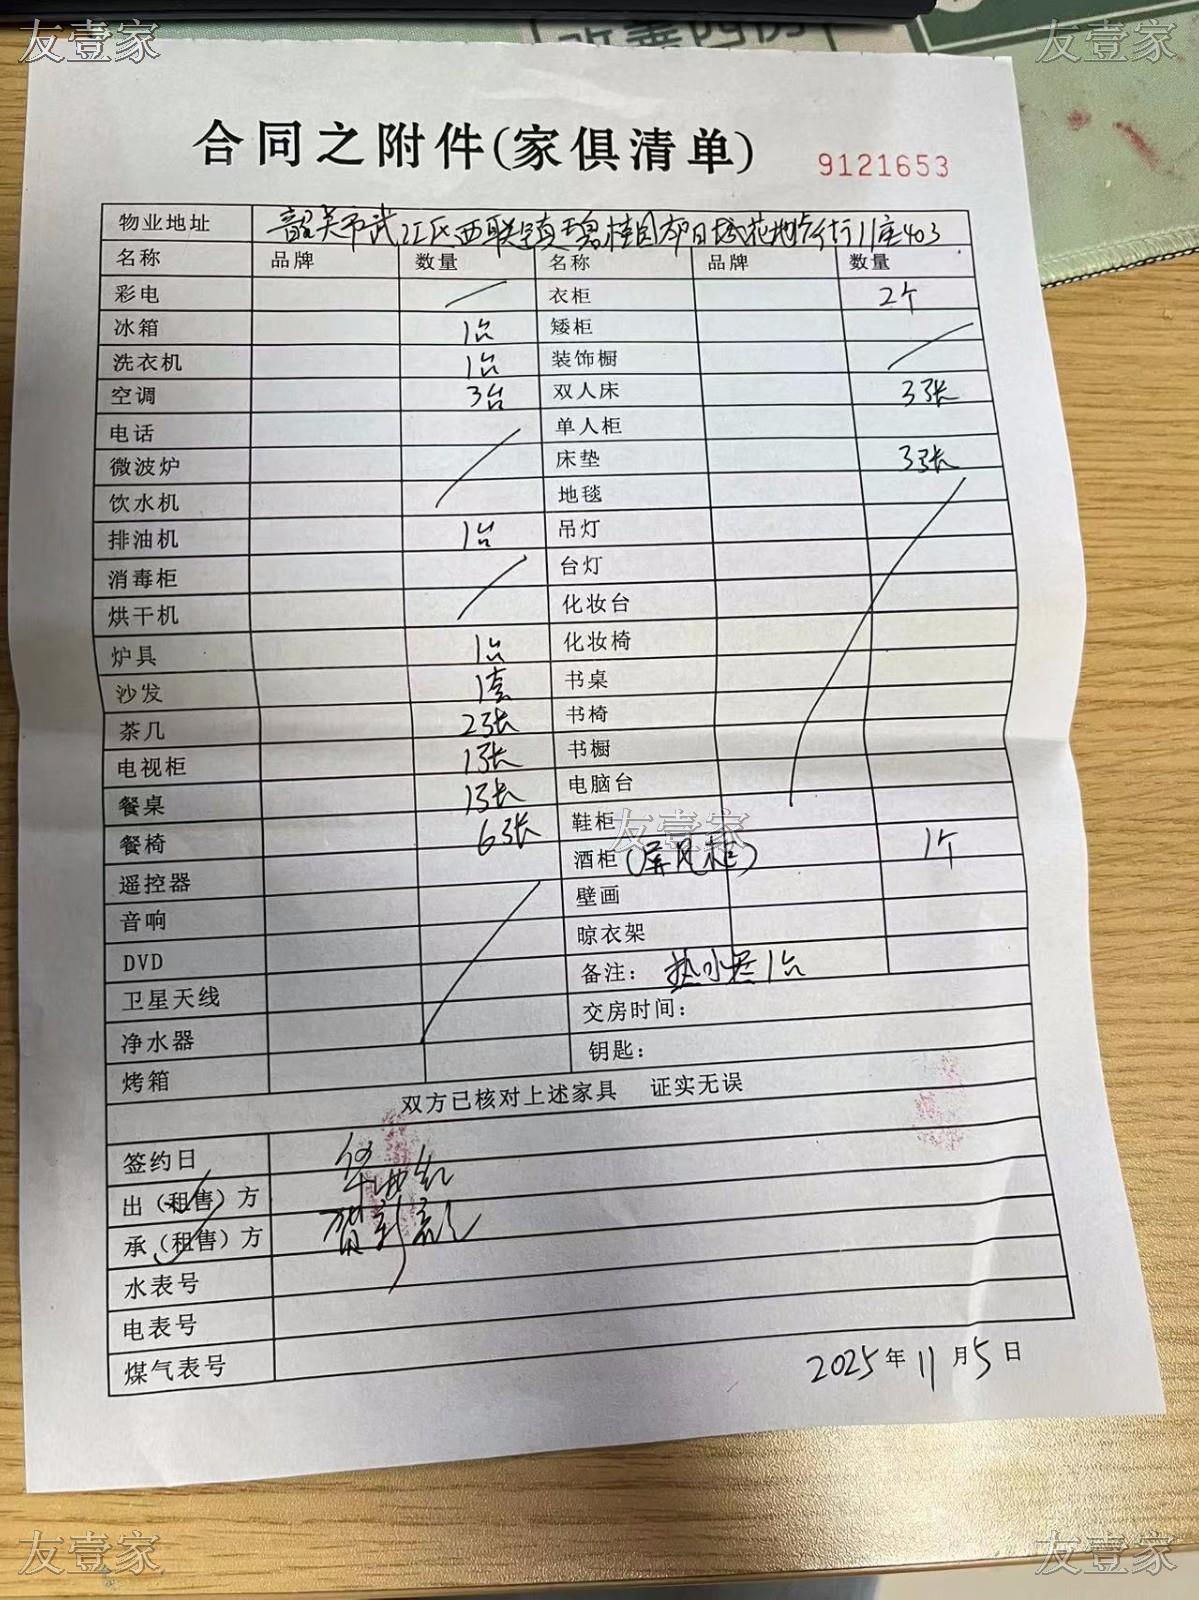 友壹家
友壹家
改善四房
合同之附件(家俱清单)
9121653
物业地址 韶关市武江区西联镇碧桂园 11座403
名称 品牌 数量 名称 品牌 数量
彩电 衣柜 2个
冰箱 1台 矮柜
洗衣机 1台 装饰橱
空调 3台 双人床 3张
电话 单人柜
微波炉 床垫 3张
饮水机 地毯
排油机 1台 吊灯
消毒柜 台灯
烘干机 化妆台
炉具 1台 化妆椅
沙发 1套 书桌
茶几 2张 书椅
电视柜 1张 书橱
餐桌 1张 电脑台
餐椅 6张 鞋柜
友壹家
遥控器 酒柜(屏风柜) 1个
音响 壁画
DVD 晾衣架
卫星天线 备注: 热水器1台
净水器 交房时间:
烤箱 钥匙:
双方已核对上述家具 证实无误
签约日
出(租售)方
承(租售)方 贺
水表号
电表号
煤气表号
2025年11月5日
友壹家
友壹家